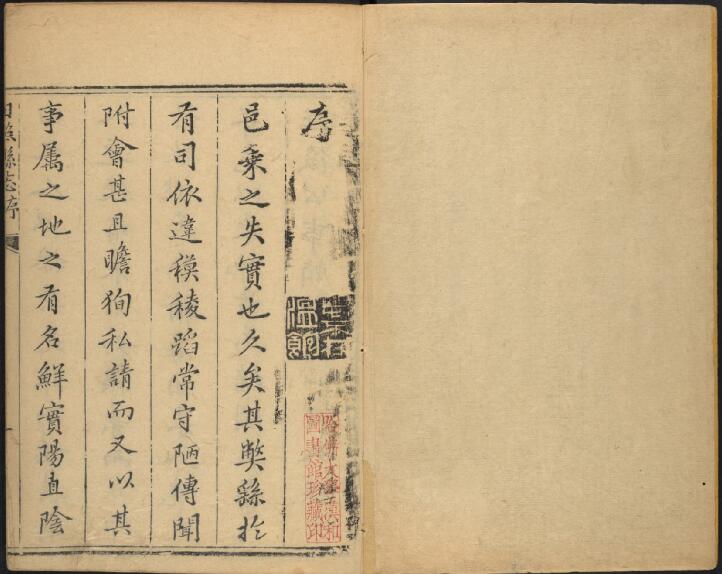 序
邑乗之失實也久矣其獘繇扵
有司依違模稜蹈常守陋傳聞
附會甚且瞻狥私請而又以其
事属之地之有名鮮實陽直隂
縣志序
哈佛大學漢和
圖書館珍藏印